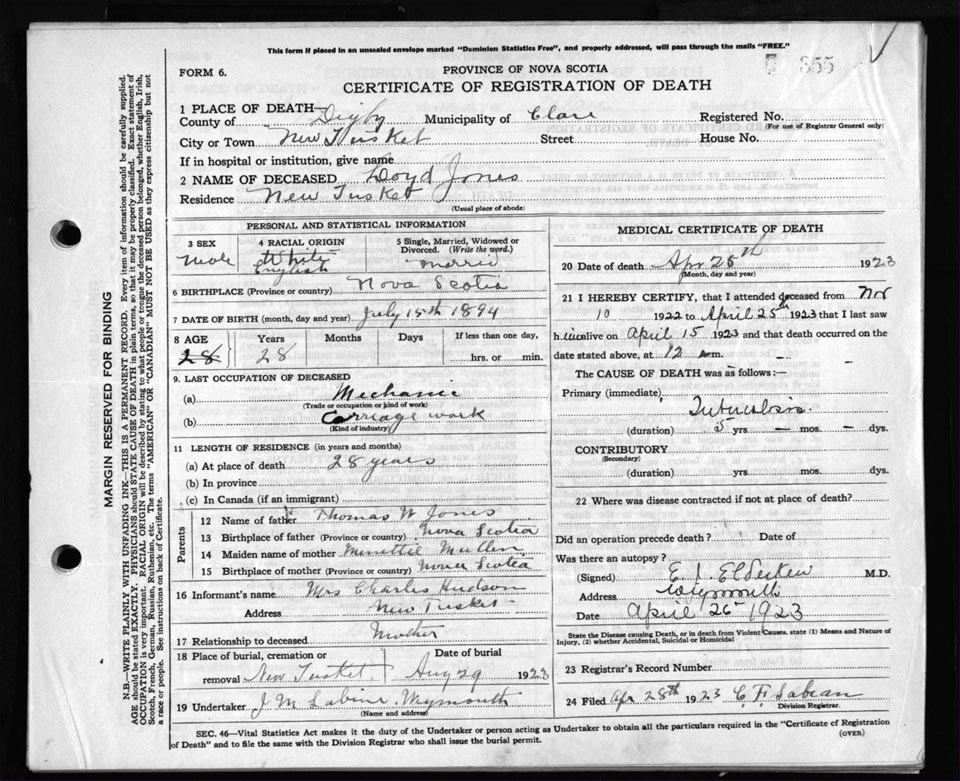 This form if placed in an unsealed envelope marked "Dominion Statistics Free", and properly addressed, will pass through the mails "FREE."
FORM 6.
PROVINCE OF NOVA SCOTIA
855
CERTIFICATE OF REGISTRATION OF DEATH
1 PLACE OF DEATH
County of Digby Municipality of Clare Registered No.
(For use of Registrar General only)
City or Town New Tusket Street House No.
If in hospital or institution, give name
2 NAME OF DECEASED Loyd Jones
Residence New Tusket
(Usual place of abode)
PERSONAL AND STATISTICAL INFORMATION
3 SEX 4 RACIAL ORIGIN 5 Single, Married, Widowed or Divorced. (Write the word.)
Male White English Married
6 BIRTHPLACE (Province or country) Nova Scotia
7 DATE OF BIRTH (month, day and year) July 15th 1894
8 AGE Years Months Days If less than one day,
28 28 hrs. or min.
9. LAST OCCUPATION OF DECEASED
(a) Mechanic
(Trade or occupation or kind of work)
(b) Carriage work
(Kind of industry)
11 LENGTH OF RESIDENCE (in years and months)
(a) At place of death 28 years
(b) In province
(c) In Canada (if an immigrant)
Parents
12 Name of father Thomas W Jones
13 Birthplace of father (Province or country) Nova Scotia
14 Maiden name of mother Mullen
15 Birthplace of mother (Province or country) Nova Scotia
16 Informant's name Mrs Charles Hudson
Address New Tusket
17 Relationship to deceased Mother
18 Place of burial, cremation or removal Date of burial
New Tusket Aug 29 1923
19 Undertaker J M Sabine Weymouth
(Name and address)
MEDICAL CERTIFICATE OF DEATH
20 Date of death Apr 25th 1923
(Month, day and year)
21 I HEREBY CERTIFY, that I attended deceased from Nov
10 1922 to April 25th 1923 that I last saw
him alive on April 15 1923 and that death occurred on the
date stated above, at 12 m.
The CAUSE OF DEATH was as follows:—
Primary (immediate)
Tuberculosis
(duration) 5 yrs. — mos. — dys.
CONTRIBUTORY
(Secondary)
(duration) yrs. mos. dys.
22 Where was disease contracted if not at place of death?
Did an operation precede death? Date of
Was there an autopsy?
(Signed) E. L. Elderkin M.D.
Address Weymouth
Date April 26 1923
State the Disease causing Death, or in death from Violent Causes, state (1) Means and Nature of Injury, (2) whether Accidental, Suicidal or Homicidal
23 Registrar's Record Number
24 Filed Apr 28th 1923 C. F. Sabean
Division Registrar.
SEC. 46—Vital Statistics Act makes it the duty of the Undertaker or person acting as Undertaker to obtain all the particulars required in the "Certificate of Registration
of Death" and to file the same with the Division Registrar who shall issue the burial permit.
(OVER)
MARGIN RESERVED FOR BINDING
N.B.—WRITE PLAINLY WITH UNFADING INK—THIS IS A PERMANENT RECORD. Every item of information should be carefully supplied.
AGE should be stated EXACTLY. PHYSICIANS should STATE CAUSE OF DEATH in plain terms, so that it may be properly classified. Exact statement of
OCCUPATION is very important. RACIAL ORIGIN will be described by stating to what people or tongue the deceased person belonged, whether English, Irish,
Scotch, French, German, Russian, Ruthenian, etc. The terms "AMERICAN" or "CANADIAN" MUST NOT BE USED as they express citizenship but not
a race or people. See instructions on back of Certificate.